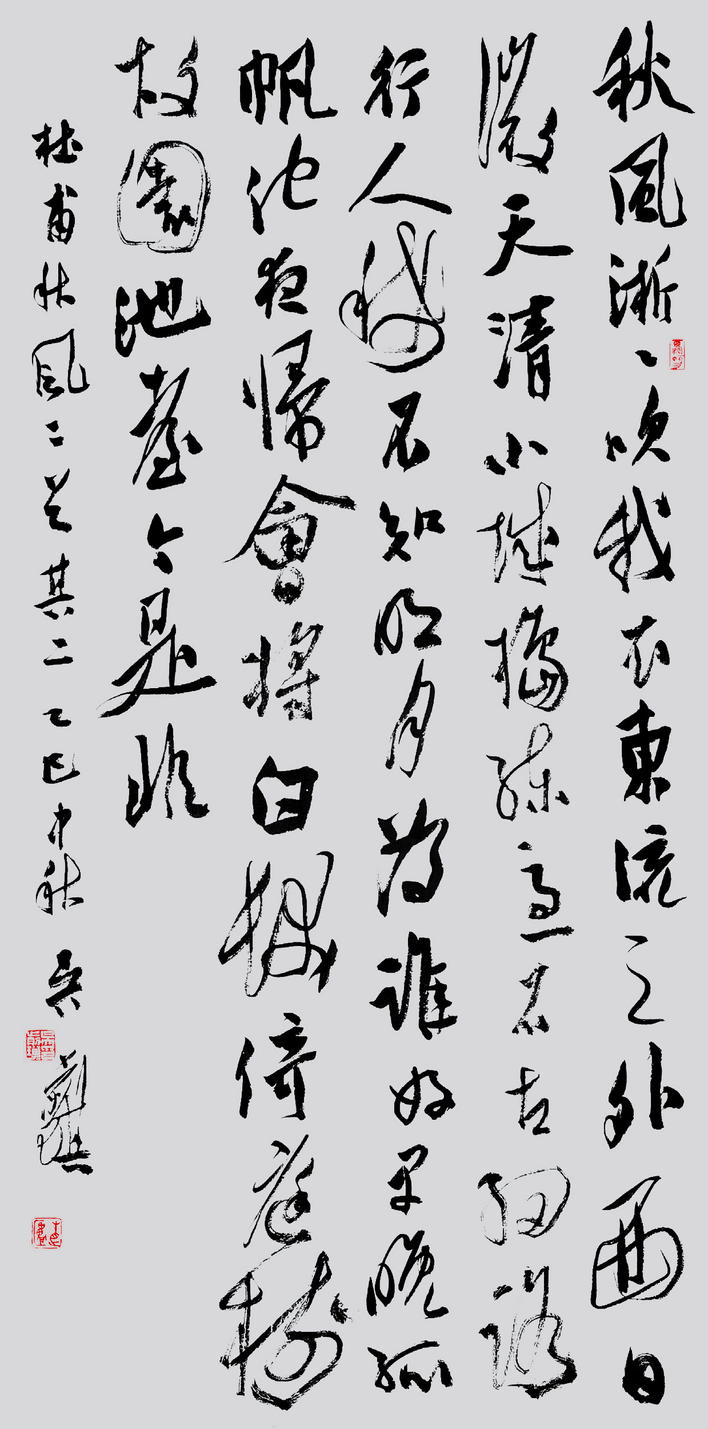 秋風淅〻吹我衣東流之外西日
微天清小城搗練急石古細路
行人稀不知明月為誰好早晚孤
帆他夜歸會將白髮倚庭樹
故園池臺今是非
杜甫秋風二首其二乙巳中秋 吳